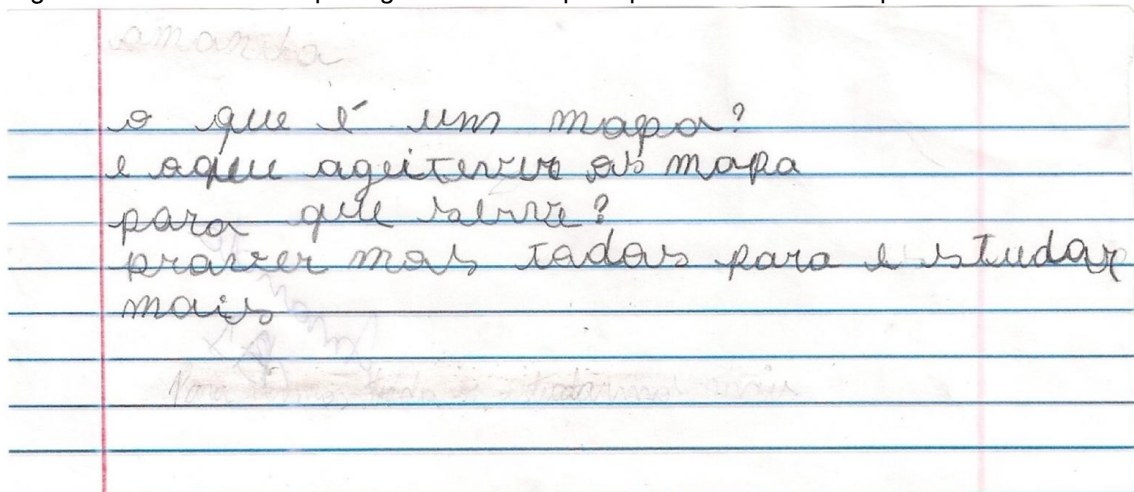 amanha
o que é um mapa?
e oqeu ageitenver os mapa
para que serve?
praver mas tadas para e studar
mais
Para mais